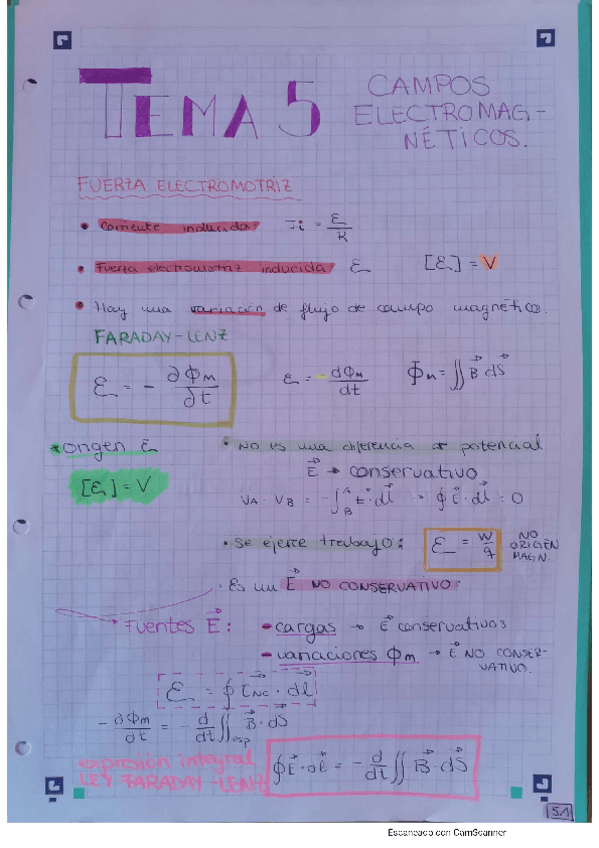 TEMA 5
CAMPOS
ELECTROMAG-
NÉTICOS.
FUERZA ELECTROMOTRIZ
• Corriente inducida Ii = ε/R
• Fuerza electromotriz inducida ε [ε] = V
• Hay una variación de flujo de campo magnético.
FARADAY-LENZ
ε = - ∂ϕm/∂t ε = - dϕm/dt Φm = ∬ B⃗ dS⃗
*origen ε
[ε] = V
• No es una diferencia de potencial
E⃗ → conservativo
VA - VB = -∫_B^A E⃗·dl⃗ → ∮ E⃗·dl⃗ = 0
• Se ejerce trabajo: ε = W/q NO
ORIGEN
MAGN.
• Es un E⃗ NO CONSERVATIVO:
Fuentes E⃗:
• cargas → E⃗ conservativos
• variaciones ϕm → E⃗ NO CONSER-
VATIVO.
ε = ∮ E⃗NC · dl⃗
-∂Φm/∂t = - d/dt ∬esp B⃗·dS⃗
expresión integral
LEY FARADAY-LENZ
∮ E⃗·dl⃗ = - d/dt ∬ B⃗·dS⃗
5.1
Escaneado con CamScanner